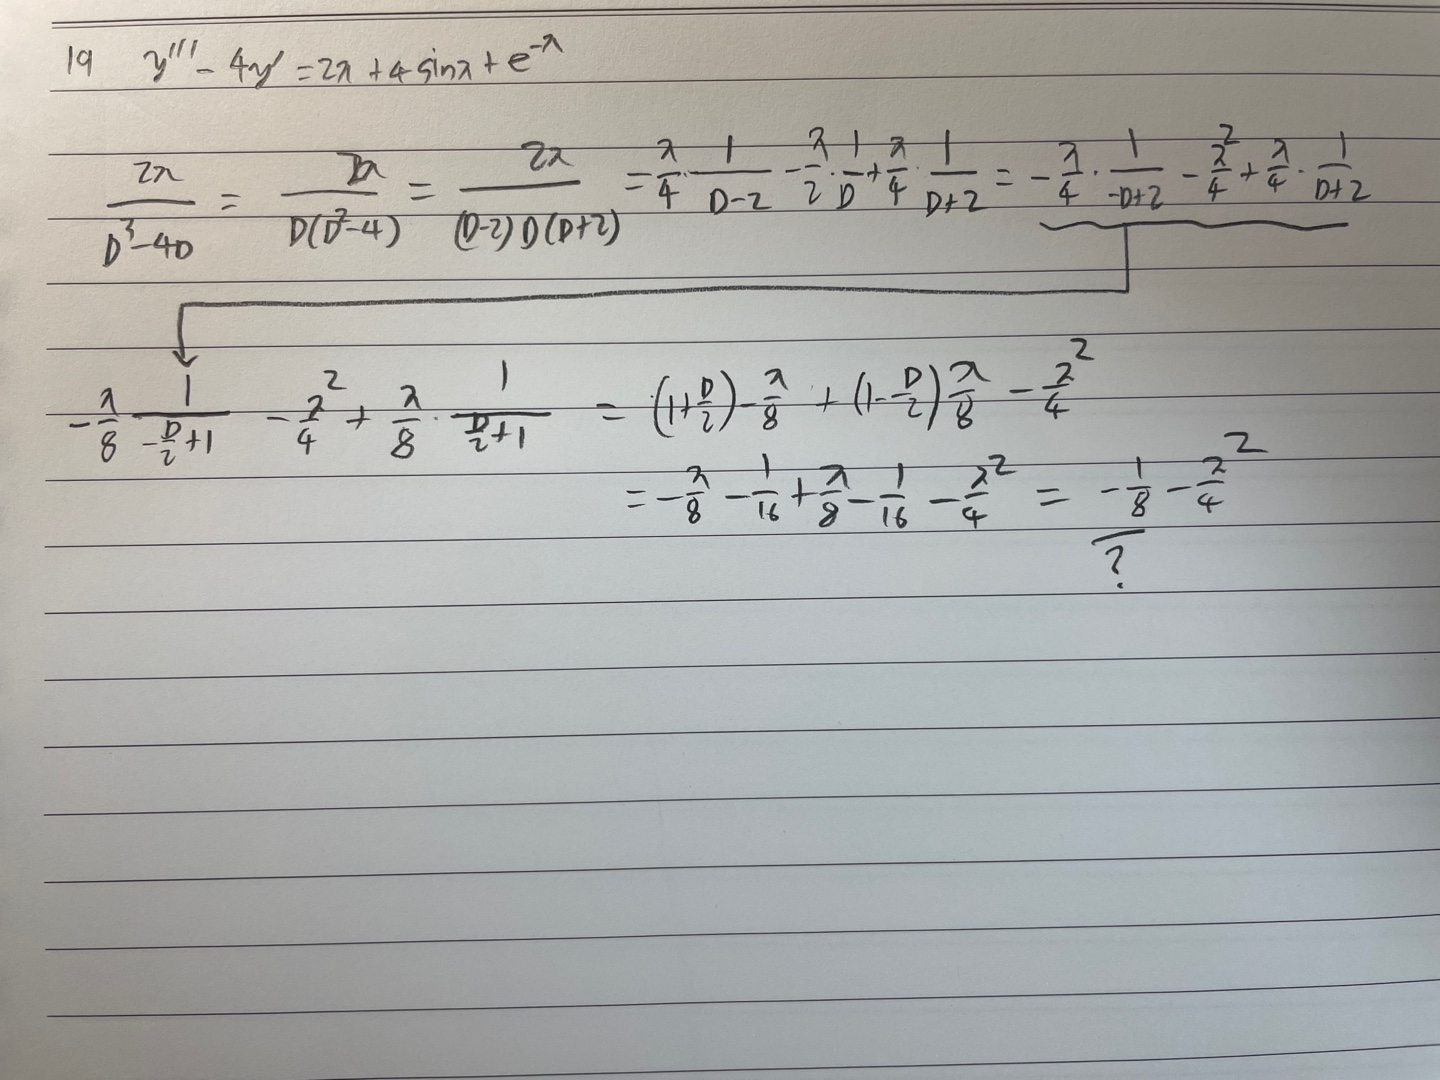 19 y''' - 4y' = 2x + 4 sinx + e^-x
2x/(D^3-4D) = 2x/(D(D^2-4)) = 2x/((D-2)D(D+2)) = x/4 · 1/(D-2) - x/2 · 1/D + x/4 · 1/(D+2) = - x/4 · 1/(-D+2) - x^2/4 + x/4 · 1/(D+2)
- x/8 1/(-D/2+1) - x^2/4 + x/8 · 1/(D/2+1) = (1+D/2) - x/8 + (1-D/2) x/8 - x^2/4
= - x/8 - 1/16 + x/8 - 1/16 - x^2/4 = - 1/8 - x^2/4
?